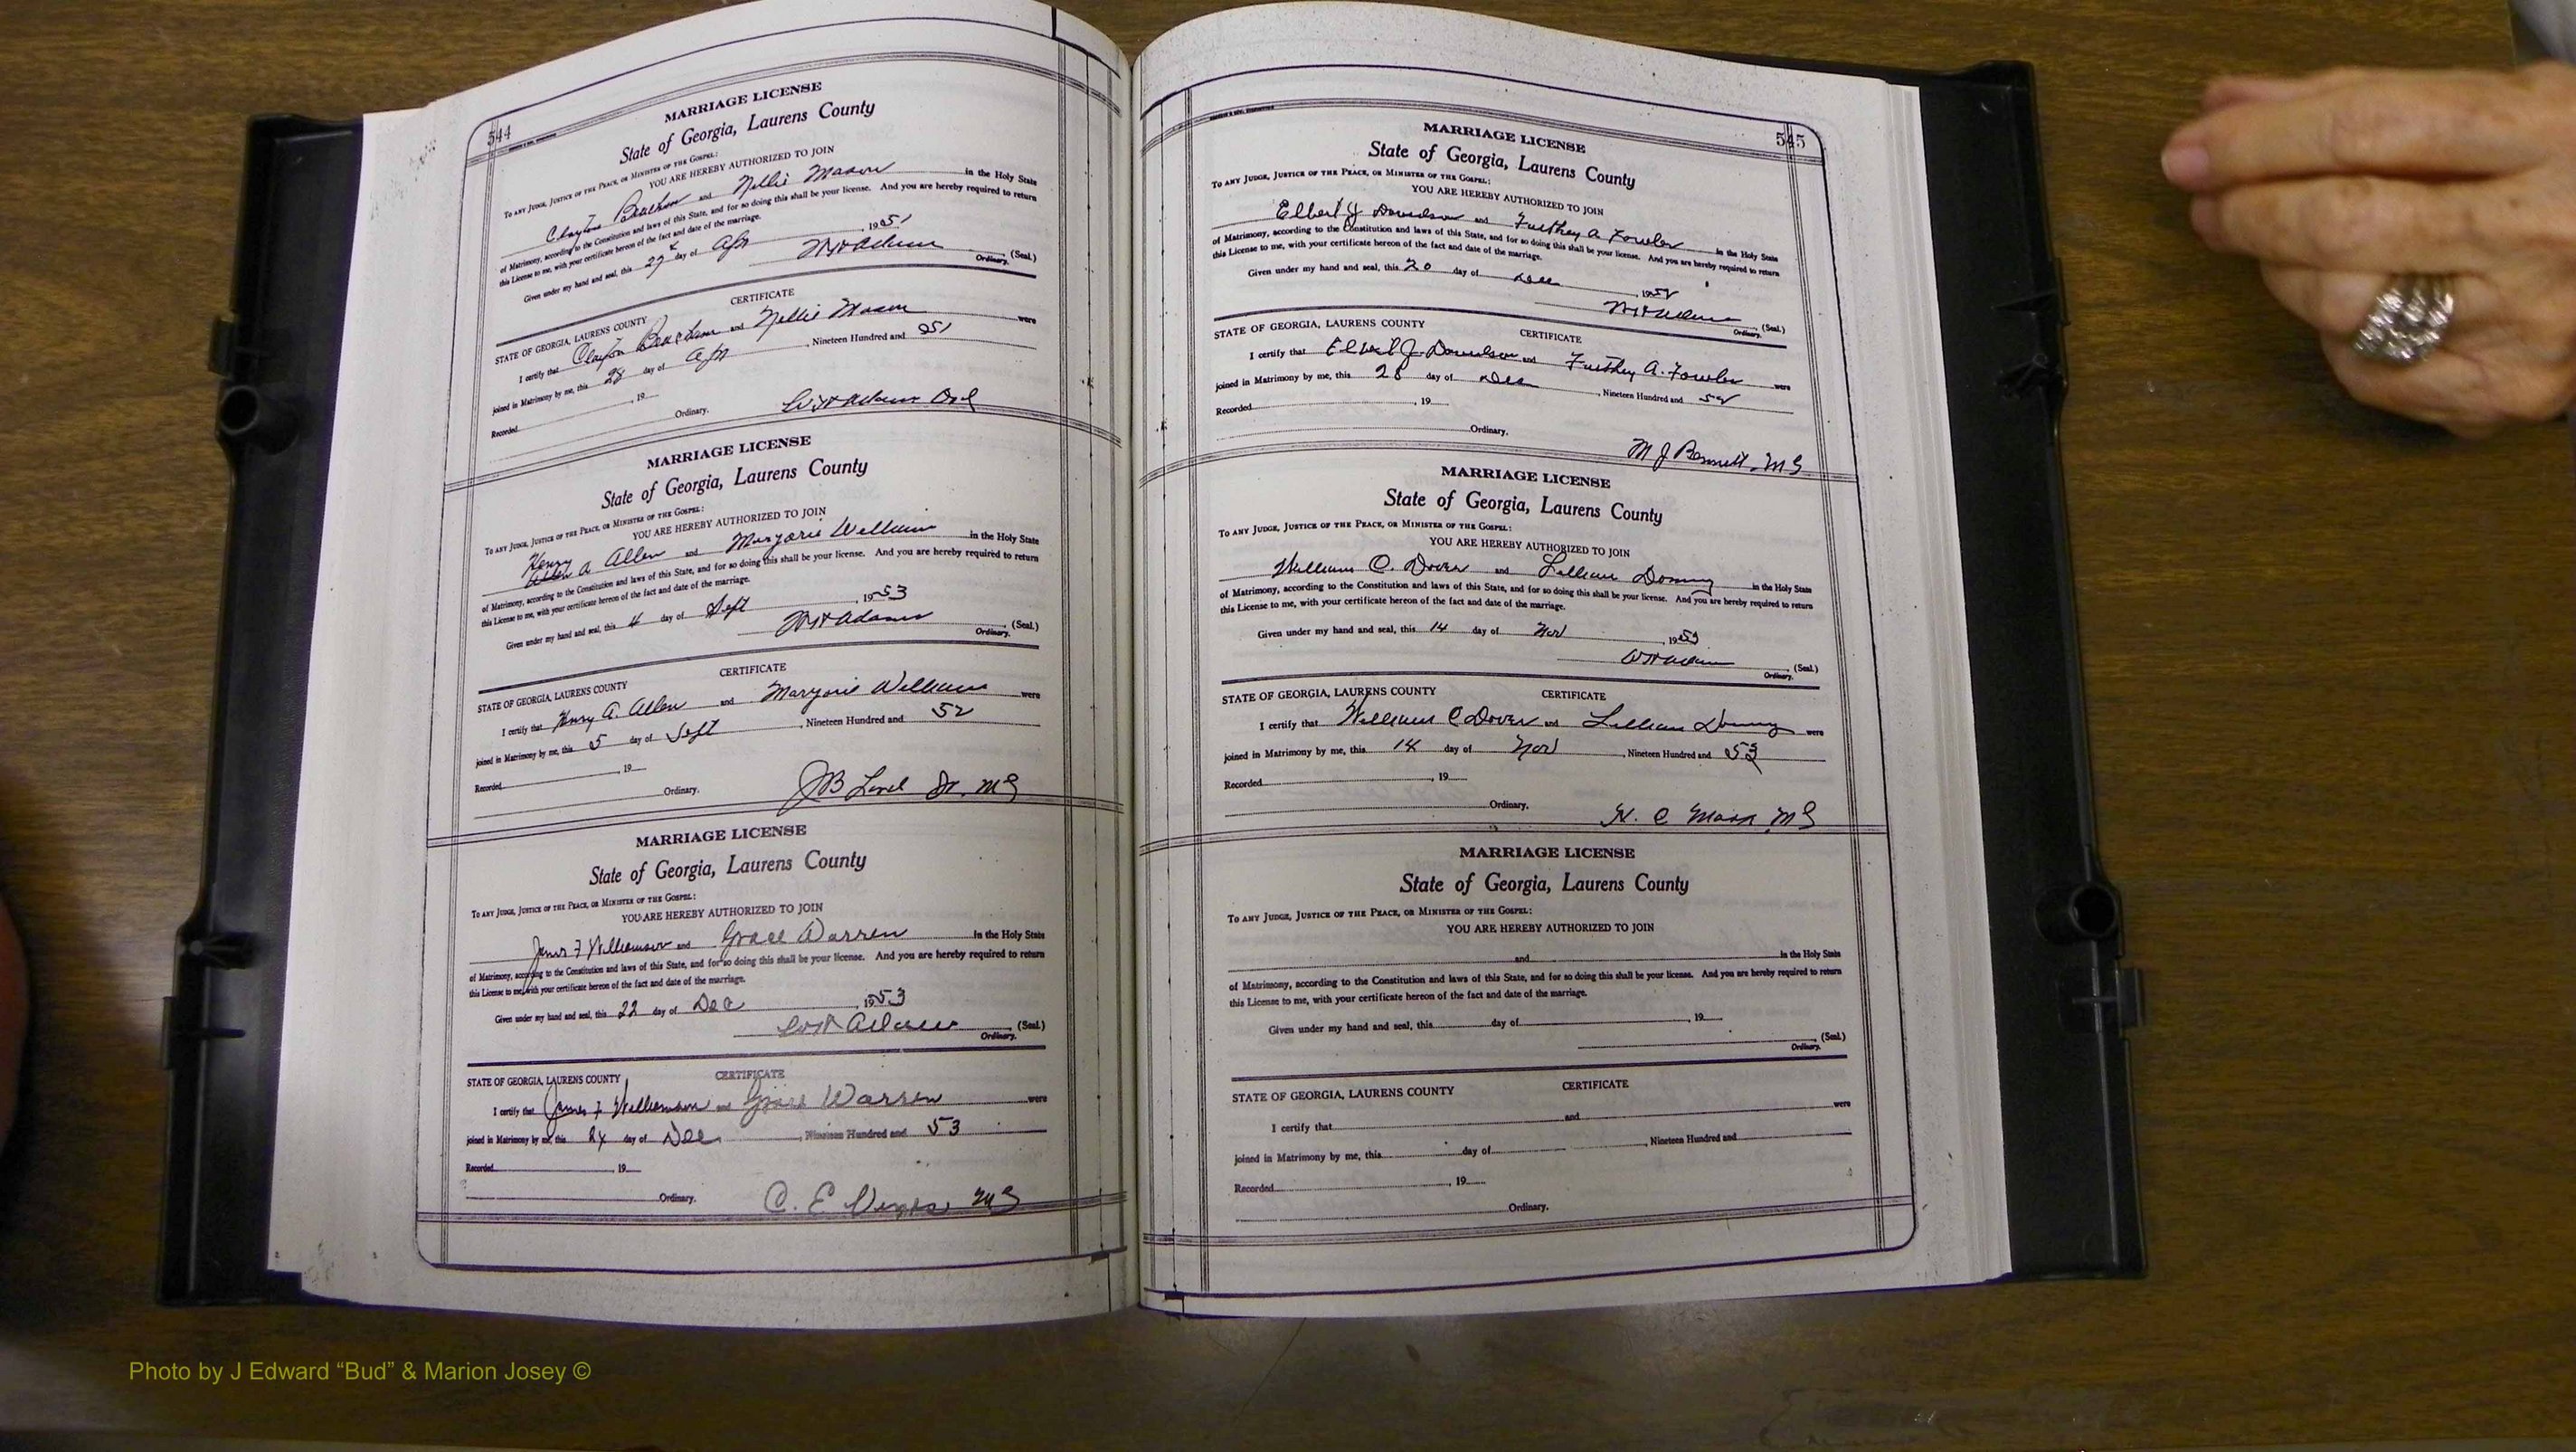 544
MARRIAGE LICENSE
State of Georgia, Laurens County
To any Judge, Justice of the Peace, or Minister of the Gospel:
YOU ARE HEREBY AUTHORIZED TO JOIN
Clayton and Nellie Mason in the Holy State
of Matrimony, according to the Constitution and laws of this State, and for so doing this shall be your license. And you are hereby required to return
this License to me, with your certificate hereon of the fact and date of the marriage.
Given under my hand and seal, this 27 day of Apr, 1951
WH Adams (Seal.)
Ordinary.
CERTIFICATE
STATE OF GEORGIA, LAURENS COUNTY
I certify that Clayton and Nellie Mason were
joined in Matrimony by me, this 28 day of Apr, Nineteen Hundred and 51
Recorded, 19
Ordinary. WH Adams Ord
MARRIAGE LICENSE
State of Georgia, Laurens County
To any Judge, Justice of the Peace, or Minister of the Gospel:
YOU ARE HEREBY AUTHORIZED TO JOIN
Henry
A Allen and Marjorie Williams in the Holy State
of Matrimony, according to the Constitution and laws of this State, and for so doing this shall be your license. And you are hereby required to return
this License to me, with your certificate hereon of the fact and date of the marriage.
Given under my hand and seal, this 4 day of Sept, 1953
WH Adams (Seal.)
Ordinary.
CERTIFICATE
STATE OF GEORGIA, LAURENS COUNTY
I certify that Henry A. Allen and Marjorie Williams were
joined in Matrimony by me, this 5 day of Sept, Nineteen Hundred and 52
Recorded, 19
Ordinary. JB Jr. MG
MARRIAGE LICENSE
State of Georgia, Laurens County
To any Judge, Justice of the Peace, or Minister of the Gospel:
YOU ARE HEREBY AUTHORIZED TO JOIN
James F Williamson and Grace Warren in the Holy State
of Matrimony, according to the Constitution and laws of this State, and for so doing this shall be your license. And you are hereby required to return
this License to me, with your certificate hereon of the fact and date of the marriage.
Given under my hand and seal, this 22 day of Dec, 1953
WH Adams (Seal.)
Ordinary.
CERTIFICATE
STATE OF GEORGIA, LAURENS COUNTY
I certify that James F Williamson and Grace Warren were
joined in Matrimony by me, this 24 day of Dec, Nineteen Hundred and 53
Recorded, 19
Ordinary. C. E MG
545
MARRIAGE LICENSE
State of Georgia, Laurens County
To any Judge, Justice of the Peace, or Minister of the Gospel:
YOU ARE HEREBY AUTHORIZED TO JOIN
Elbert J Davidson and A Fowler in the Holy State
of Matrimony, according to the Constitution and laws of this State, and for so doing this shall be your license. And you are hereby required to return
this License to me, with your certificate hereon of the fact and date of the marriage.
Given under my hand and seal, this 20 day of Dec, 1952
WH Adams (Seal.)
Ordinary.
STATE OF GEORGIA, LAURENS COUNTY CERTIFICATE
I certify that Elbert J. Davidson and A. Fowler were
joined in Matrimony by me, this 28 day of Dec, Nineteen Hundred and 52
Recorded, 19
Ordinary.
M J Bennett, MG
MARRIAGE LICENSE
State of Georgia, Laurens County
To any Judge, Justice of the Peace, or Minister of the Gospel:
YOU ARE HEREBY AUTHORIZED TO JOIN
William C. Dover and Lillian in the Holy State
of Matrimony, according to the Constitution and laws of this State, and for so doing this shall be your license. And you are hereby required to return
this License to me, with your certificate hereon of the fact and date of the marriage.
Given under my hand and seal, this 14 day of Nov, 1953
WH Adams (Seal.)
Ordinary.
STATE OF GEORGIA, LAURENS COUNTY CERTIFICATE
I certify that William C Dover and Lillian were
joined in Matrimony by me, this 14 day of Nov, Nineteen Hundred and 53
Recorded, 19
Ordinary.
C MG
MARRIAGE LICENSE
State of Georgia, Laurens County
To any Judge, Justice of the Peace, or Minister of the Gospel:
YOU ARE HEREBY AUTHORIZED TO JOIN
and in the Holy State
of Matrimony, according to the Constitution and laws of this State, and for so doing this shall be your license. And you are hereby required to return
this License to me, with your certificate hereon of the fact and date of the marriage.
Given under my hand and seal, this day of, 19
(Seal.)
Ordinary.
STATE OF GEORGIA, LAURENS COUNTY CERTIFICATE
I certify that and were
joined in Matrimony by me, this day of, Nineteen Hundred and
Recorded, 19
Ordinary.
Photo by J Edward “Bud” & Marion Josey ©